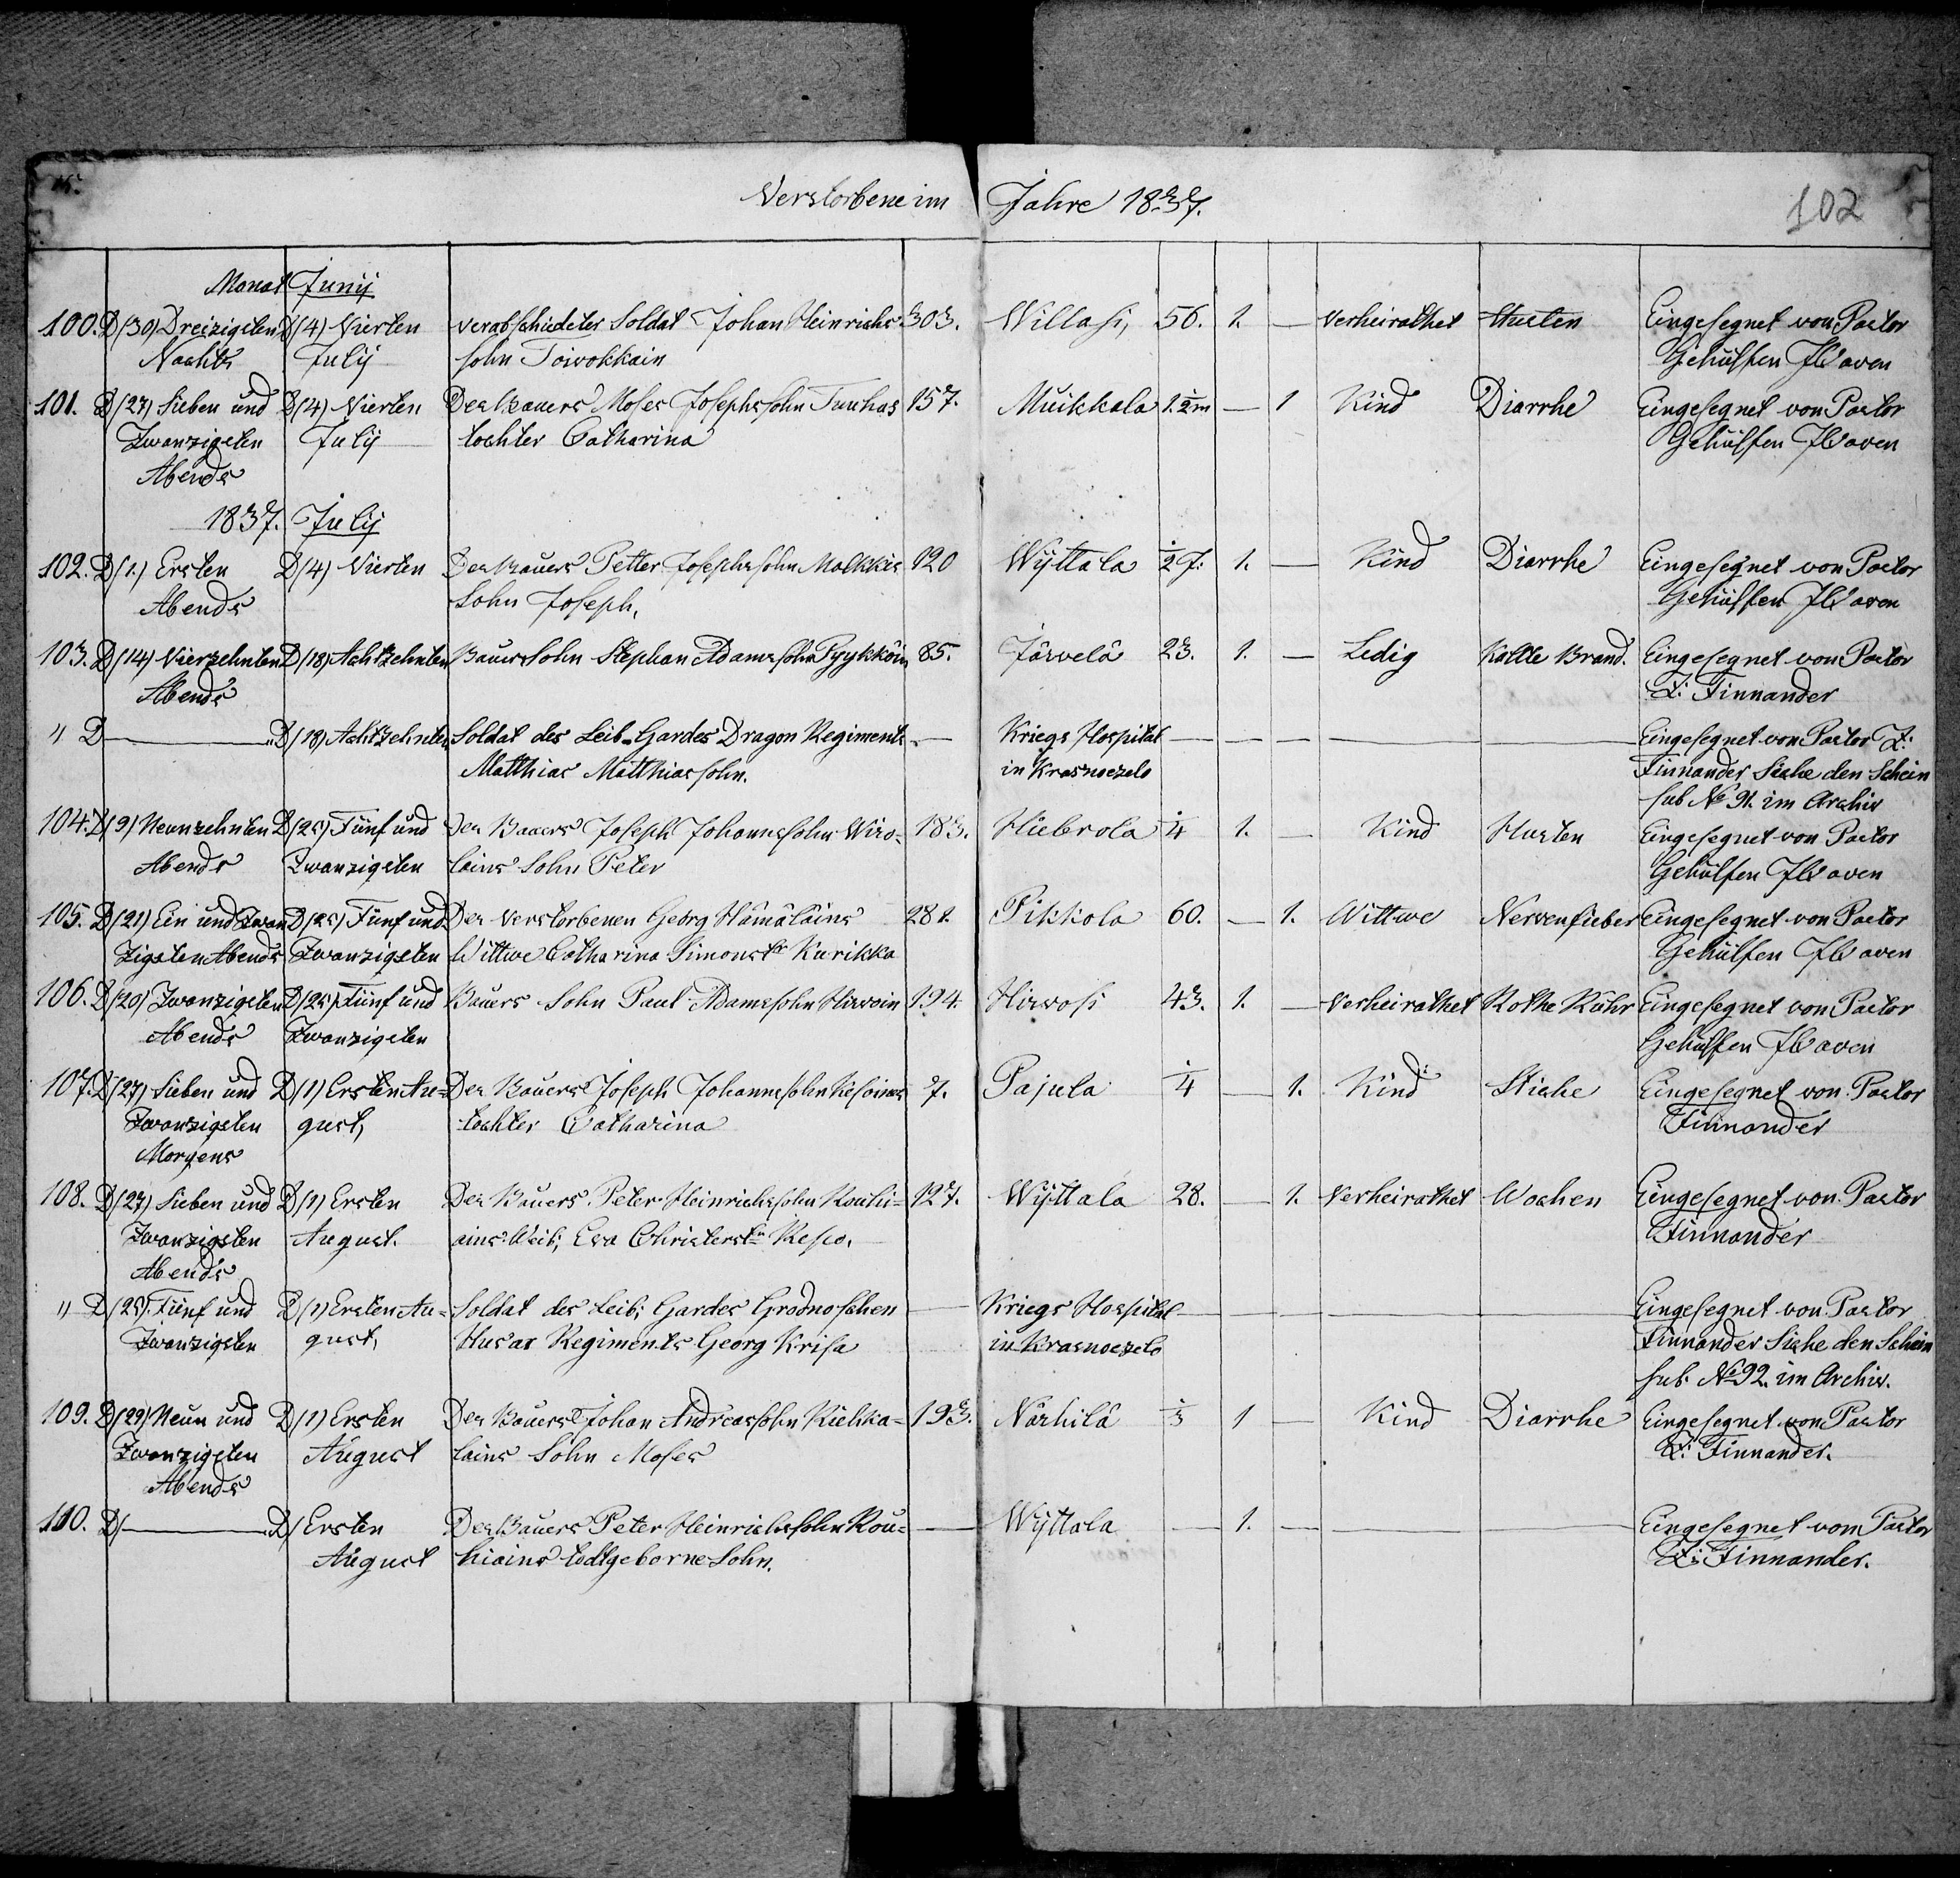 Verstorbene im Jahre 1837.
102
Monat Junij
100. D (30) Dreizigsten D (4) Vierten verabschiedeter Soldat Johan Heinrichs 303. Willasi, 56. 1. — Verheirathet Husten Eingesegnet von Pastor
Nachts July sohn Toiwokkain Gehülfen
101. D (27) Sieben und D (4) Vierten Des Bauers Moses Josephssohn Tunhas 157. Muikkala 1. 2m — 1 Kind Diarrhe Eingesegnet von Pastor
Zwanzigsten July tochter Catharina Gehülfen
Abends
1837. July
102. D (1.) Ersten D (4) Vierten Des Bauers Petter Josephssohn Malkkis 120 Wÿttala 1. — Kind Diarrhe Eingesegnet von Pastor
Abends Sohn Joseph. Gehülfen
103. D (14) Vierzehnten D (18) Achtzehnten Bauers Sohn Stephan Adamssohn Pyykköin 85. Järvelä 23. 1. — Ledig Kalte Brand. Eingesegnet von Pastor
Abends Z: Finnander
" D — D (18) Achtzehnten Soldat des Leib-Gardes Dragon Regiments — Kriegs Hospital — — — — — Eingesegnet von Pastor Z:
Matthias Matthiassohn. in Krasnoezelo Finnander Siehe den Schein
sub № 91. im Archiv
104. D (9) Neunzehnten D (25) Fünf und Des Bauers Joseph Johanssohn Wiro- 183. Hiebrola 1/4 1. — Kind Husten Eingesegnet von Pastor
Abends Zwanzigsten lains Sohn Peter Gehülfen
105. D (21) Ein und Zwan D (25) Fünf und Des verstorbenen Georg Hämäläins 281. Pikkola 60. — 1. Wittwe Nervenfieber Eingesegnet von Pastor
Zigsten Abends Zwanzigsten Wittwe Catharina Simonstr Kurikka Gehülfen
106. D (20) Zwanzigsten D (25) Fünf und Bauers Sohn Paul Adamssohn Hirwoin 194. Hirvosi 43. 1. — Verheirathet Rothe Ruhr Eingesegnet von Pastor
Abends Zwanzigsten Gehülfen
107. D (27) Sieben und D (1) Ersten Au- Des Bauers Joseph Johanssohn 7. Pajula 1/4 — 1. Kind Stiche Eingesegnet von Pastor
Zwanzigsten gust, tochter Catharina Finnander
Morgens
108. D (27) Sieben und D (1) Ersten Des Bauers Peter Heinrichssohn Rouhi- 127. Wÿttala 28. — 1. Verheirathet Wochen Eingesegnet von Pastor
Zwanzigsten August. ains Weib, Eva Christerstr Repo. Finnander
Abends
" D (25) Fünf und D (1) Ersten Au- Soldat des Leib: Gardes Grodnoschen — Kriegs Hospital — — — — — Eingesegnet von Pastor
Zwanzigsten gust, Husar Regiments Georg Krisa in Krasnoezelo Finnander Siehe den Schein
sub. № 92. im Archiv.
109. D (29) Neun und D (1) Ersten Des Bauers Johan Andreassohn Kiehka- 193. Närhilä 1/3 1 — Kind Diarrhe Eingesegnet von Pastor
Zwanzigsten August lains Sohn Moses Z: Finnander.
Abends
110. D/ — D/ Ersten Des Bauers Peter Heinrichssohn Rou- — Wÿttala — 1. — — Eingesegnet vom Pastor
August hiains todtgeborne Sohn. Z: Finnander.